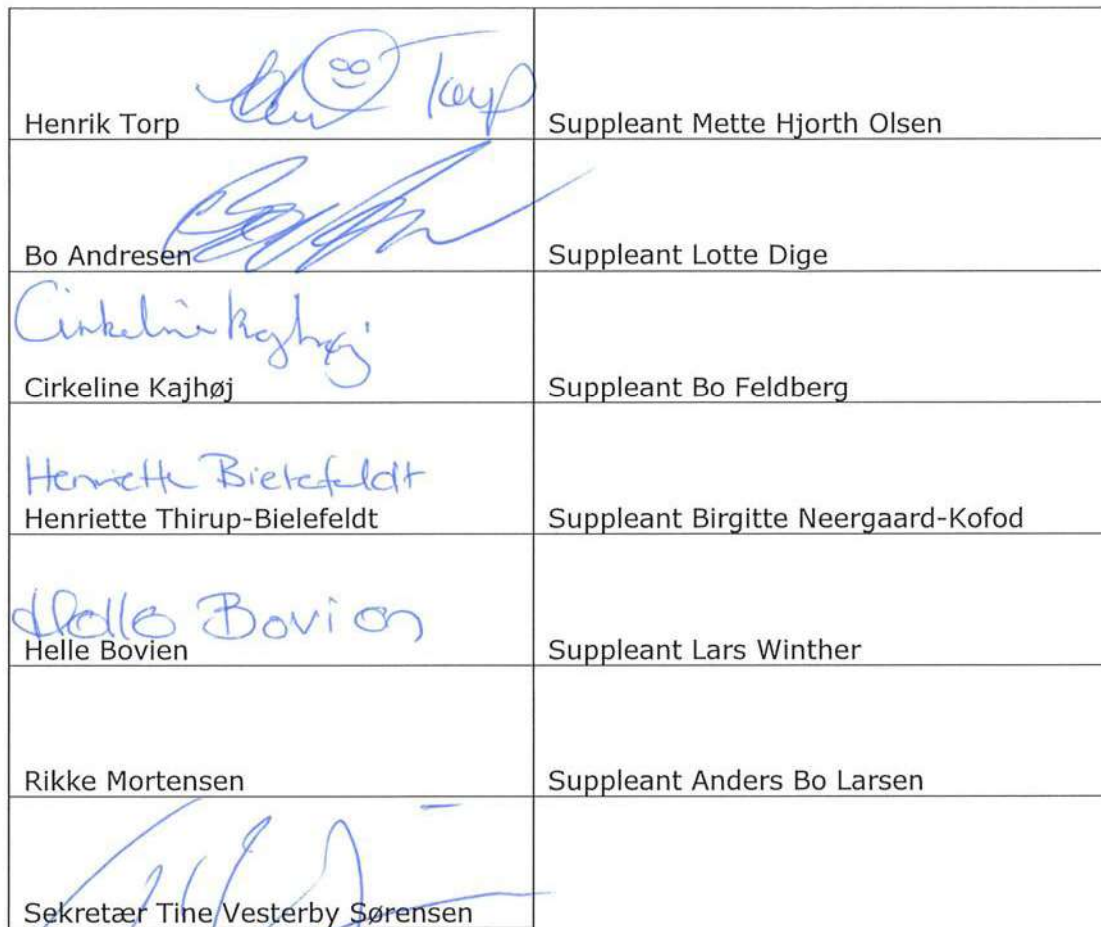 Torp
Henrik Torp
Suppleant Mette Hjorth Olsen
Bo Andresen
Suppleant Lotte Dige
Cirkeline Kajhøj
Cirkeline Kajhøj
Suppleant Bo Feldberg
Henriette Bielefeldt
Henriette Thirup-Bielefeldt
Suppleant Birgitte Neergaard-Kofod
Helle Bovien
Helle Bovien
Suppleant Lars Winther
Rikke Mortensen
Suppleant Anders Bo Larsen
Sekretær Tine Vesterby Sørensen